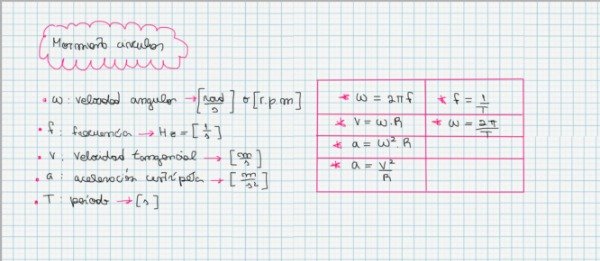 Movimiento circular
• ω: velocidad angular → [rad/s] o [r.p.m]
• f: frecuencia → Hz = [1/s]
• v: velocidad tangencial → [m/s]
• a: aceleración centrípeta → [m/s²]
• T: período → [s]
* ω = 2πf * f = 1/T
* v = ω·R * ω = 2π/T
* a = ω²·R
* a = v²/R